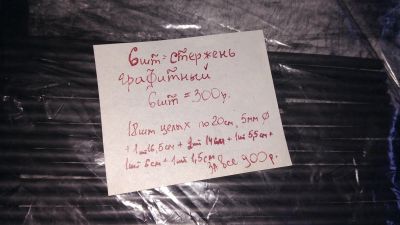 6шт = стержень
графитный
6шт = 300р.
18шт целых по 20см, 5мм ⌀
+ 1шт 6,5см + 2шт 14см + 1шт 5,5см +
1шт 6см + 1шт 1,5см
за все 900р.